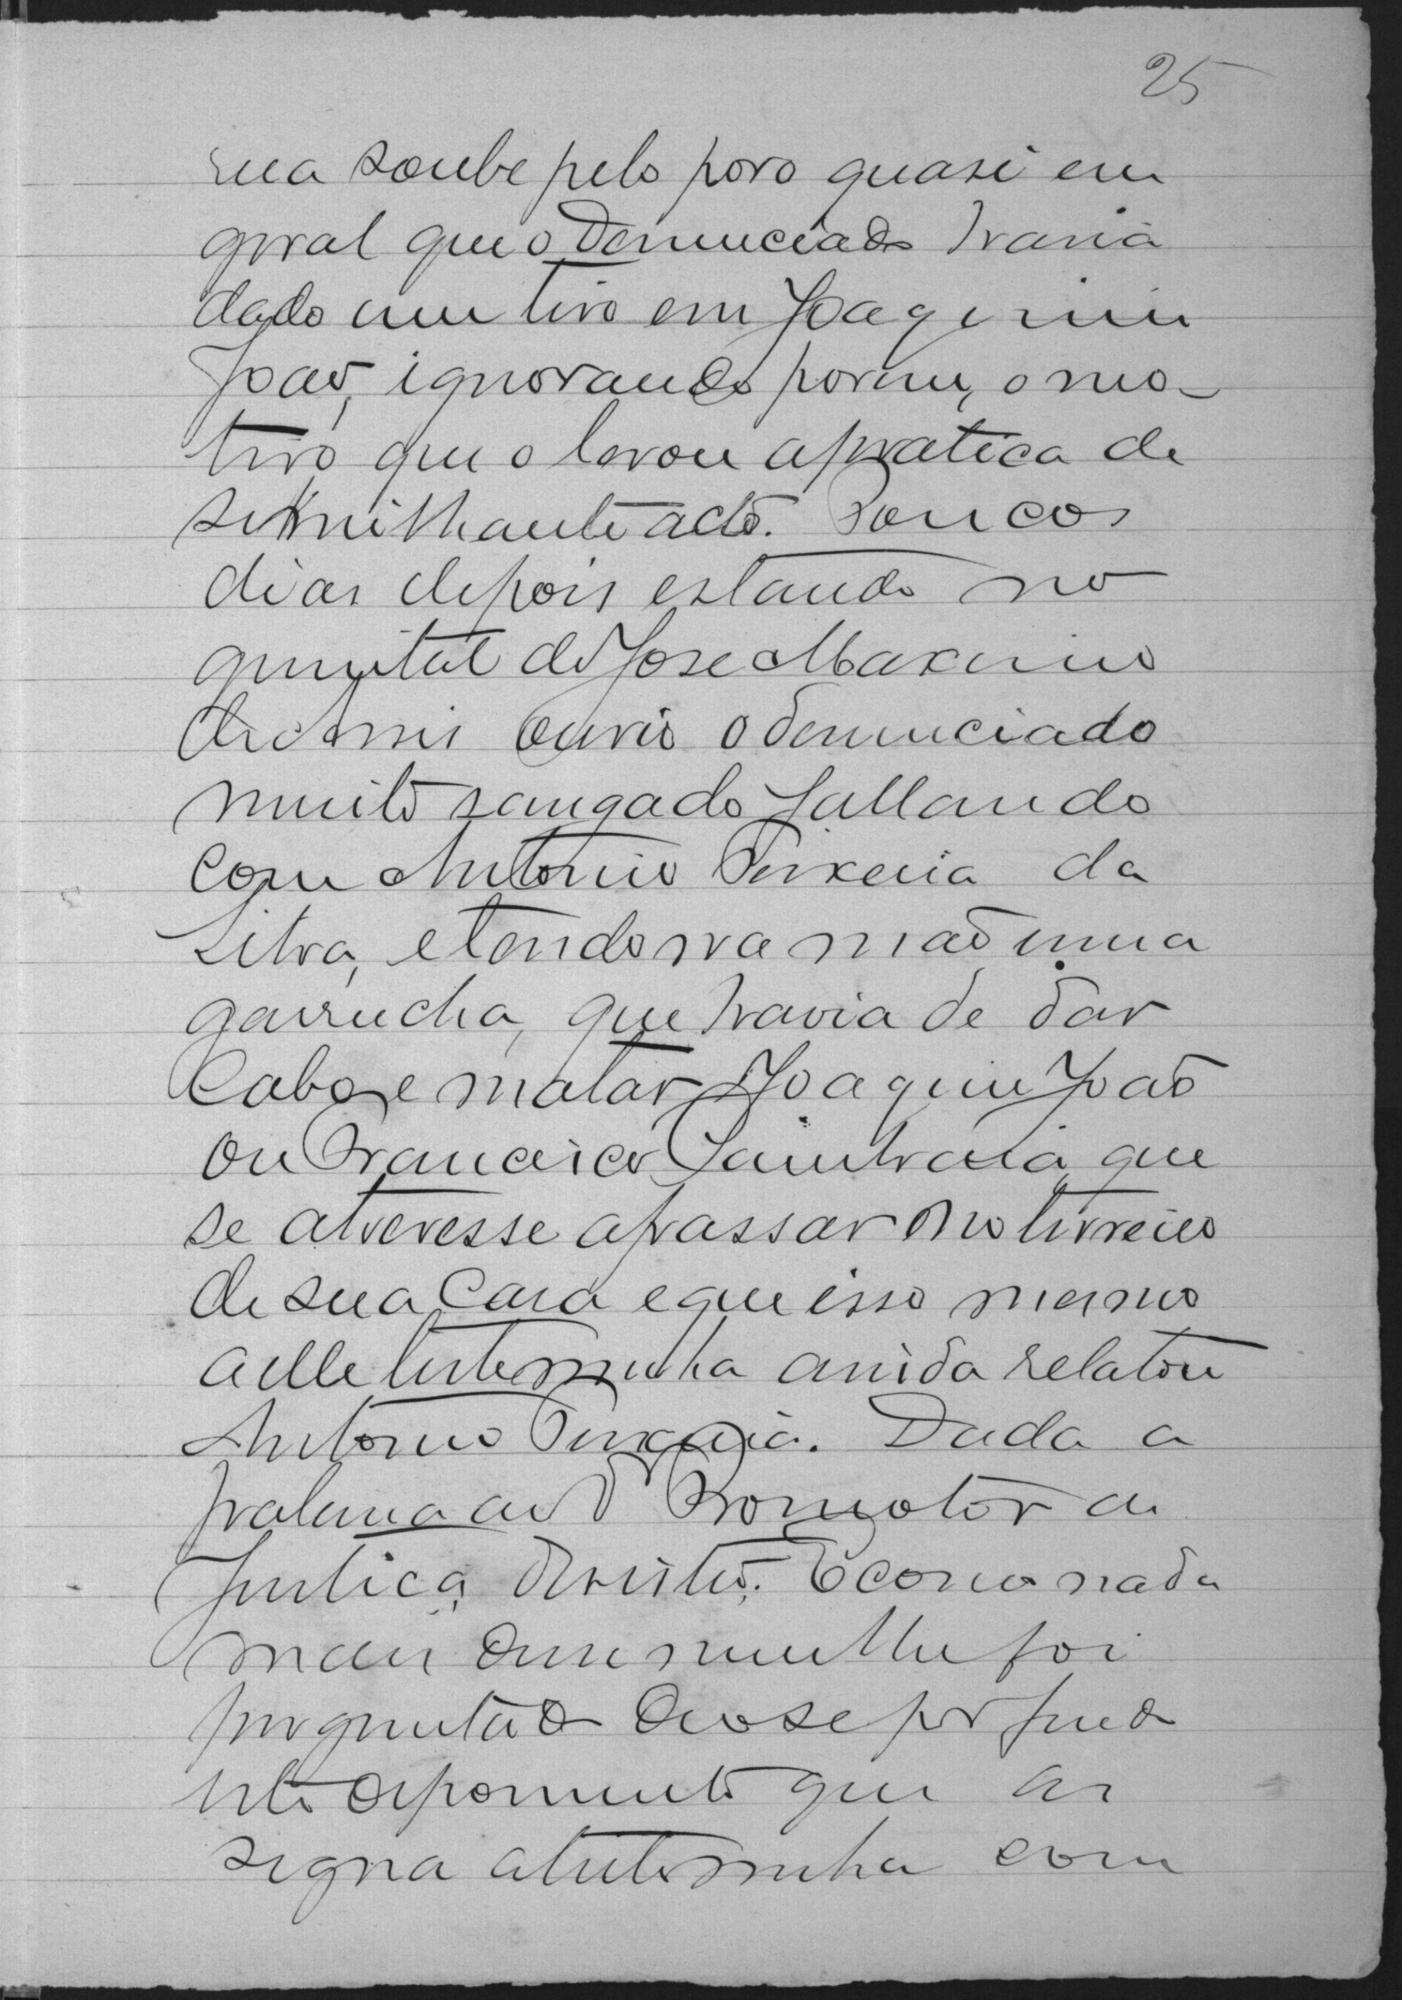 25
rua soube pelo povo quasi em
geral que o denunciado havia
dado um tiro em Joaquim
João, ignorando porem, o mo-
tivo que o levou a pratica de
similhante acto. Poucos
dias depois estando no
quintal de José Maximo
de Assis ouvio o denunciado
muito zangado fallando
com Antonio Teixeira da
Silva, e tendo na mão uma
garrucha, que havia de dar
cabo e matar Joaquim João
ou Francisco que
se atrevesse a passar no terreiro
de sua casa e que isso mesmo
a elle testemunha ainda relatou
Antonio Teixeira. Dada a
palavra ao Dr Promotor de
Justiça, desistio. E como nada
mais disse nem lhe foi
perguntado deu-se por findo
este depoimento que as
signa a testemunha com